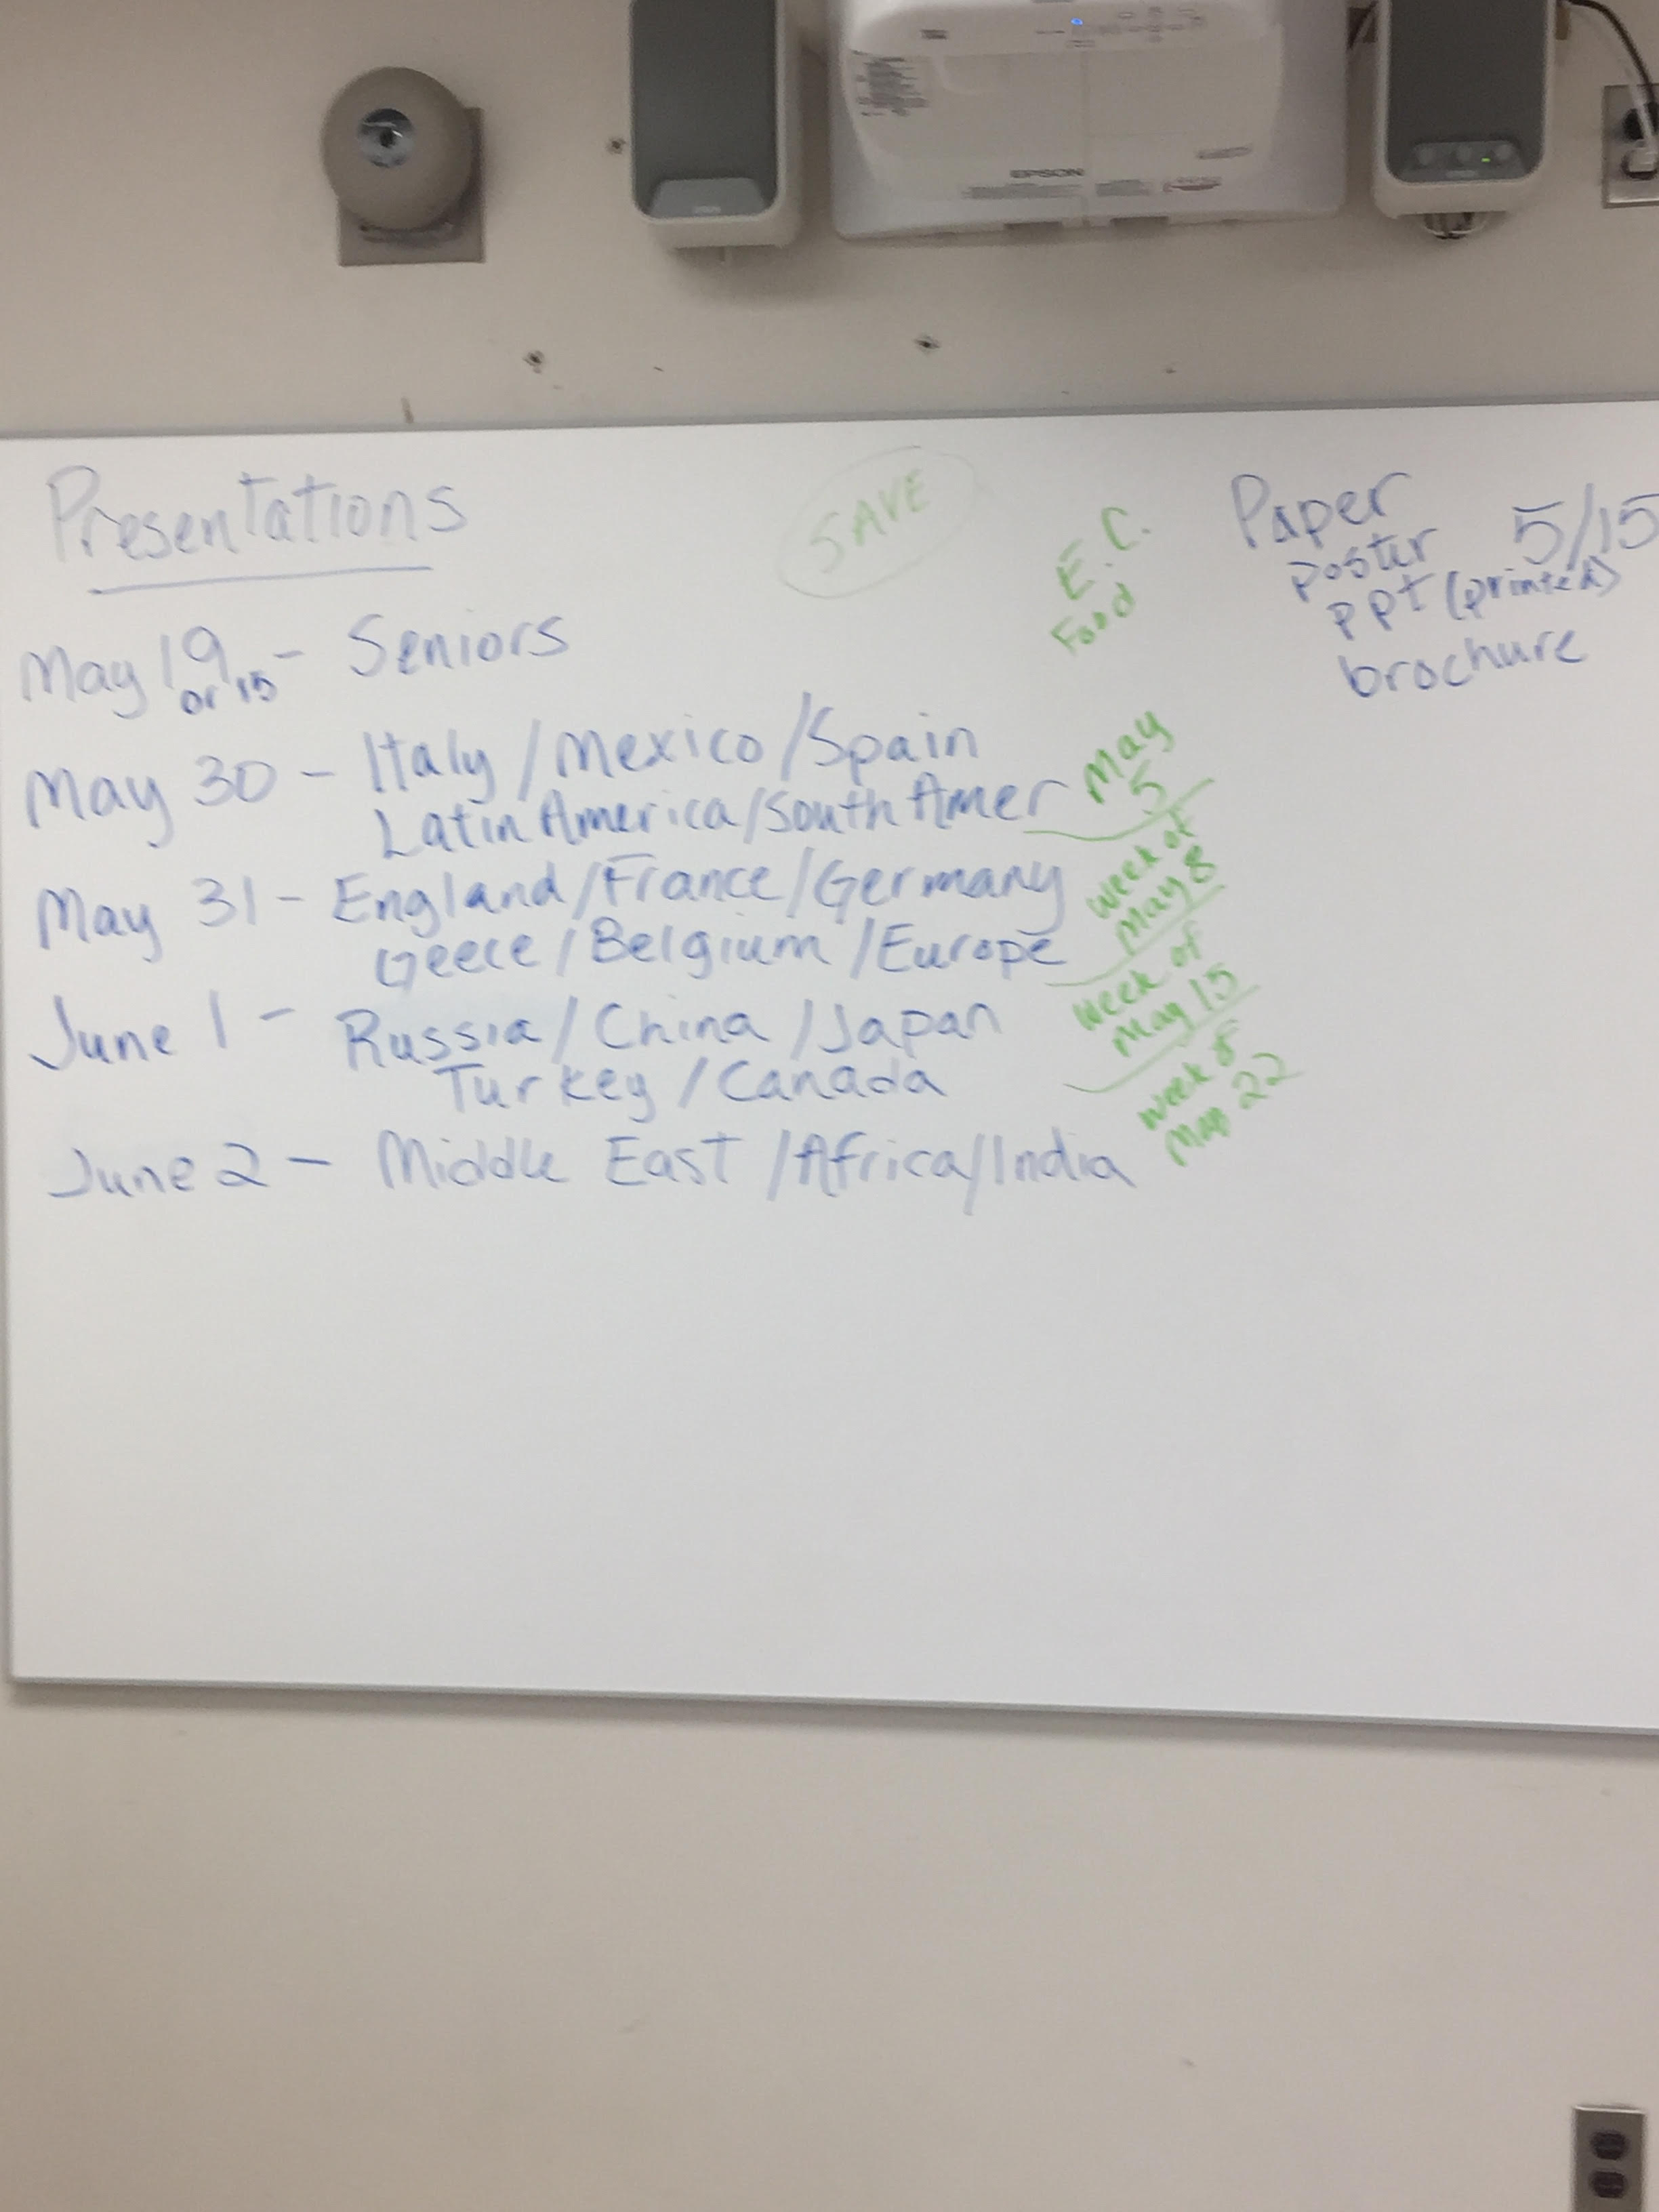 EPSON
Presentations
SAVE
May 19 - Seniors
or 15
May 30 - Italy/Mexico/Spain
Latin America/South Amer
May 31 - England/France/Germany
Geece/Belgium/Europe
June 1 - Russia/China/Japan
Turkey/Canada
June 2 - Middle East/Africa/India
E.C.
Food
May
5
week of
May 8
week of
May 15
week of
May 22
Paper 5/15
poster
ppt (printed)
brochure